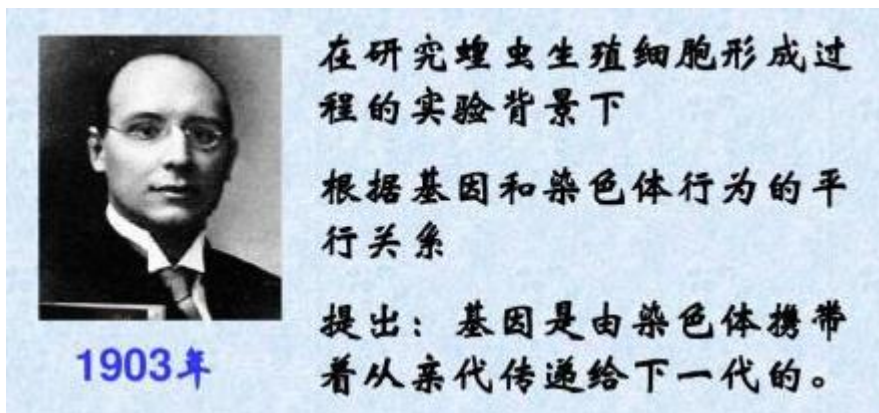 在研究蝗虫生殖细胞形成过
程的实验背景下
根据基因和染色体行为的平
行关系
提出：基因是由染色体携带
着从亲代传递给下一代的。
1903年